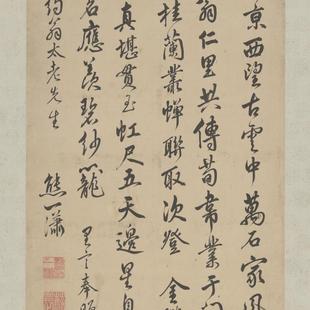 京西望古雲中萬石家風
翁仁里共傳荀韋業于門
桂蘭叢蟬聯取次登金
真堪貫玉虹尺五天邊星自
名應羨碧紗籠 里言奉贈
約翁太老先生
熊一瀟